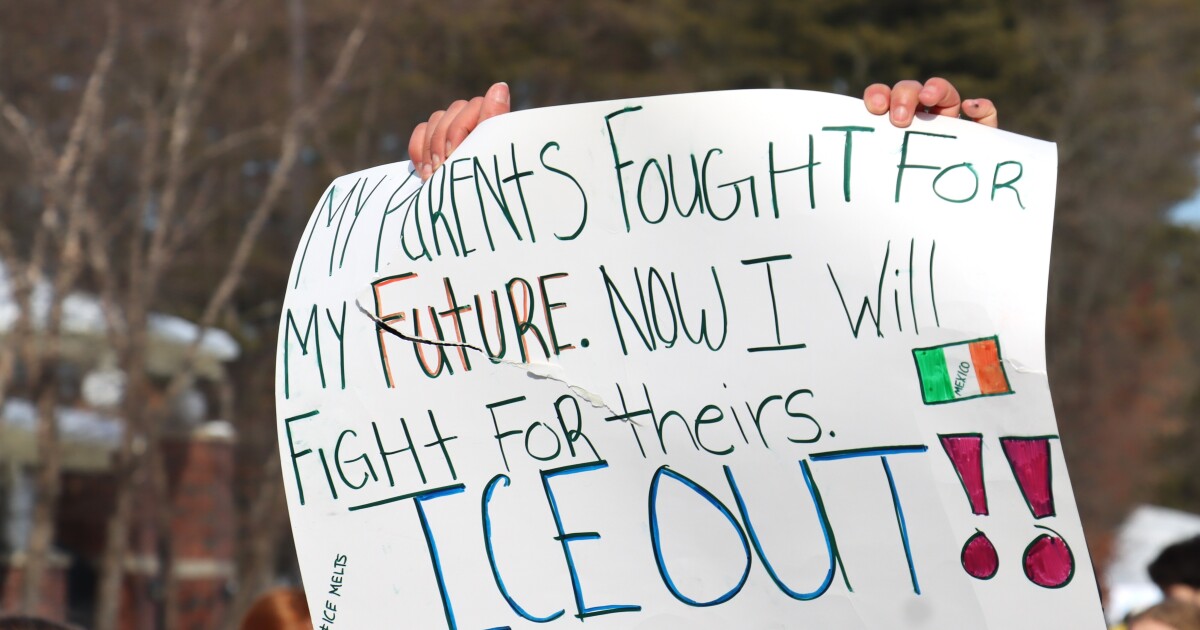 MY PARENTS FOUGHT FOR
MY FUTURE. NOW I Will
FIGHT FOR theirs.
MEXICO
ICE OUT!!
#ICE MELTS